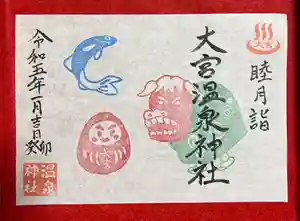 大宮
睦月詣
大宮温泉神社
令和五年一月吉日
癸卯
温泉
神社